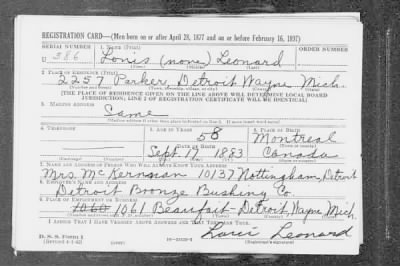 REGISTRATION CARD—(Men born on or after April 28, 1877 and on or before February 16, 1897)
SERIAL NUMBER 1. NAME (Print) ORDER NUMBER
U 386 Louis (none) Leonard
2. PLACE OF RESIDENCE (Print)
2257 Parker, Detroit Wayne Mich.
[THE PLACE OF RESIDENCE GIVEN ON THE LINE ABOVE WILL DETERMINE LOCAL BOARD
JURISDICTION; LINE 2 OF REGISTRATION CERTIFICATE WILL BE IDENTICAL]
3. MAILING ADDRESS
Same
4. TELEPHONE 5. AGE IN YEARS 6. PLACE OF BIRTH
58 Montreal
DATE OF BIRTH
Sept. 17 1883 Canada
7. NAME AND ADDRESS OF PERSON WHO WILL ALWAYS KNOW YOUR ADDRESS
Mrs. McKernnan 10137 Nottingham, Detroit
8. EMPLOYER'S NAME AND ADDRESS
Detroit Bronze Bushing Co.
9. PLACE OF EMPLOYMENT OR BUSINESS
1060 1061 Beaufait - Detroit, Wayne, Mich.
I AFFIRM THAT I HAVE VERIFIED ABOVE ANSWERS AND THAT THEY ARE TRUE.
D. S. S. Form 1
(Revised 4-1-42) (over) Louis Leonard
(Registrant's signature)